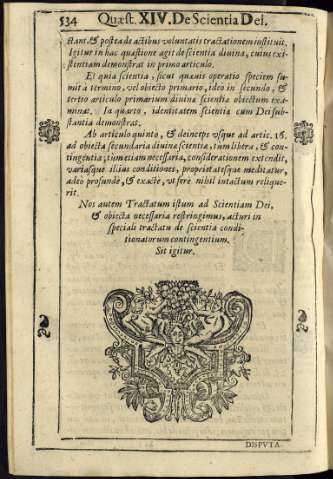 534 Quæst. XIV. De Scientia Dei.
ctant, & postea de actibus voluntatis tractationem instituit.
Igitur in hac quæstione agit de scientia diuina, cuius exi-
stentiam demonstrat in primo articulo.
Et quia scientia, sicut quæuis operatio speciem su-
mit à termino, vel obiecto primario, ideo in secundo, &
tertio articulo primarium diuinæ scientiæ obiectum exa-
minat. In quarto, identitatem scientiæ cum Dei sub-
stantia demonstrat.
Ab articulo quinto, & deinceps vsque ad artic. 16.
ad obiecta secundaria diuinæ scientiæ, tum libera, & con-
tingentia, tum etiam necessaria, considerationem extendit,
variasque illius conditiones, proprietatesque meditatur,
adeò profundè, & exactè, vt ferè nihil intactum relique-
rit.
Nos autem Tractatum istum ad Scientiam Dei,
& obiecta necessaria restringimus, acturi in
speciali tractatu de scientia condi-
tionatorum contingentium.
Sit igitur.
DISPVTA-